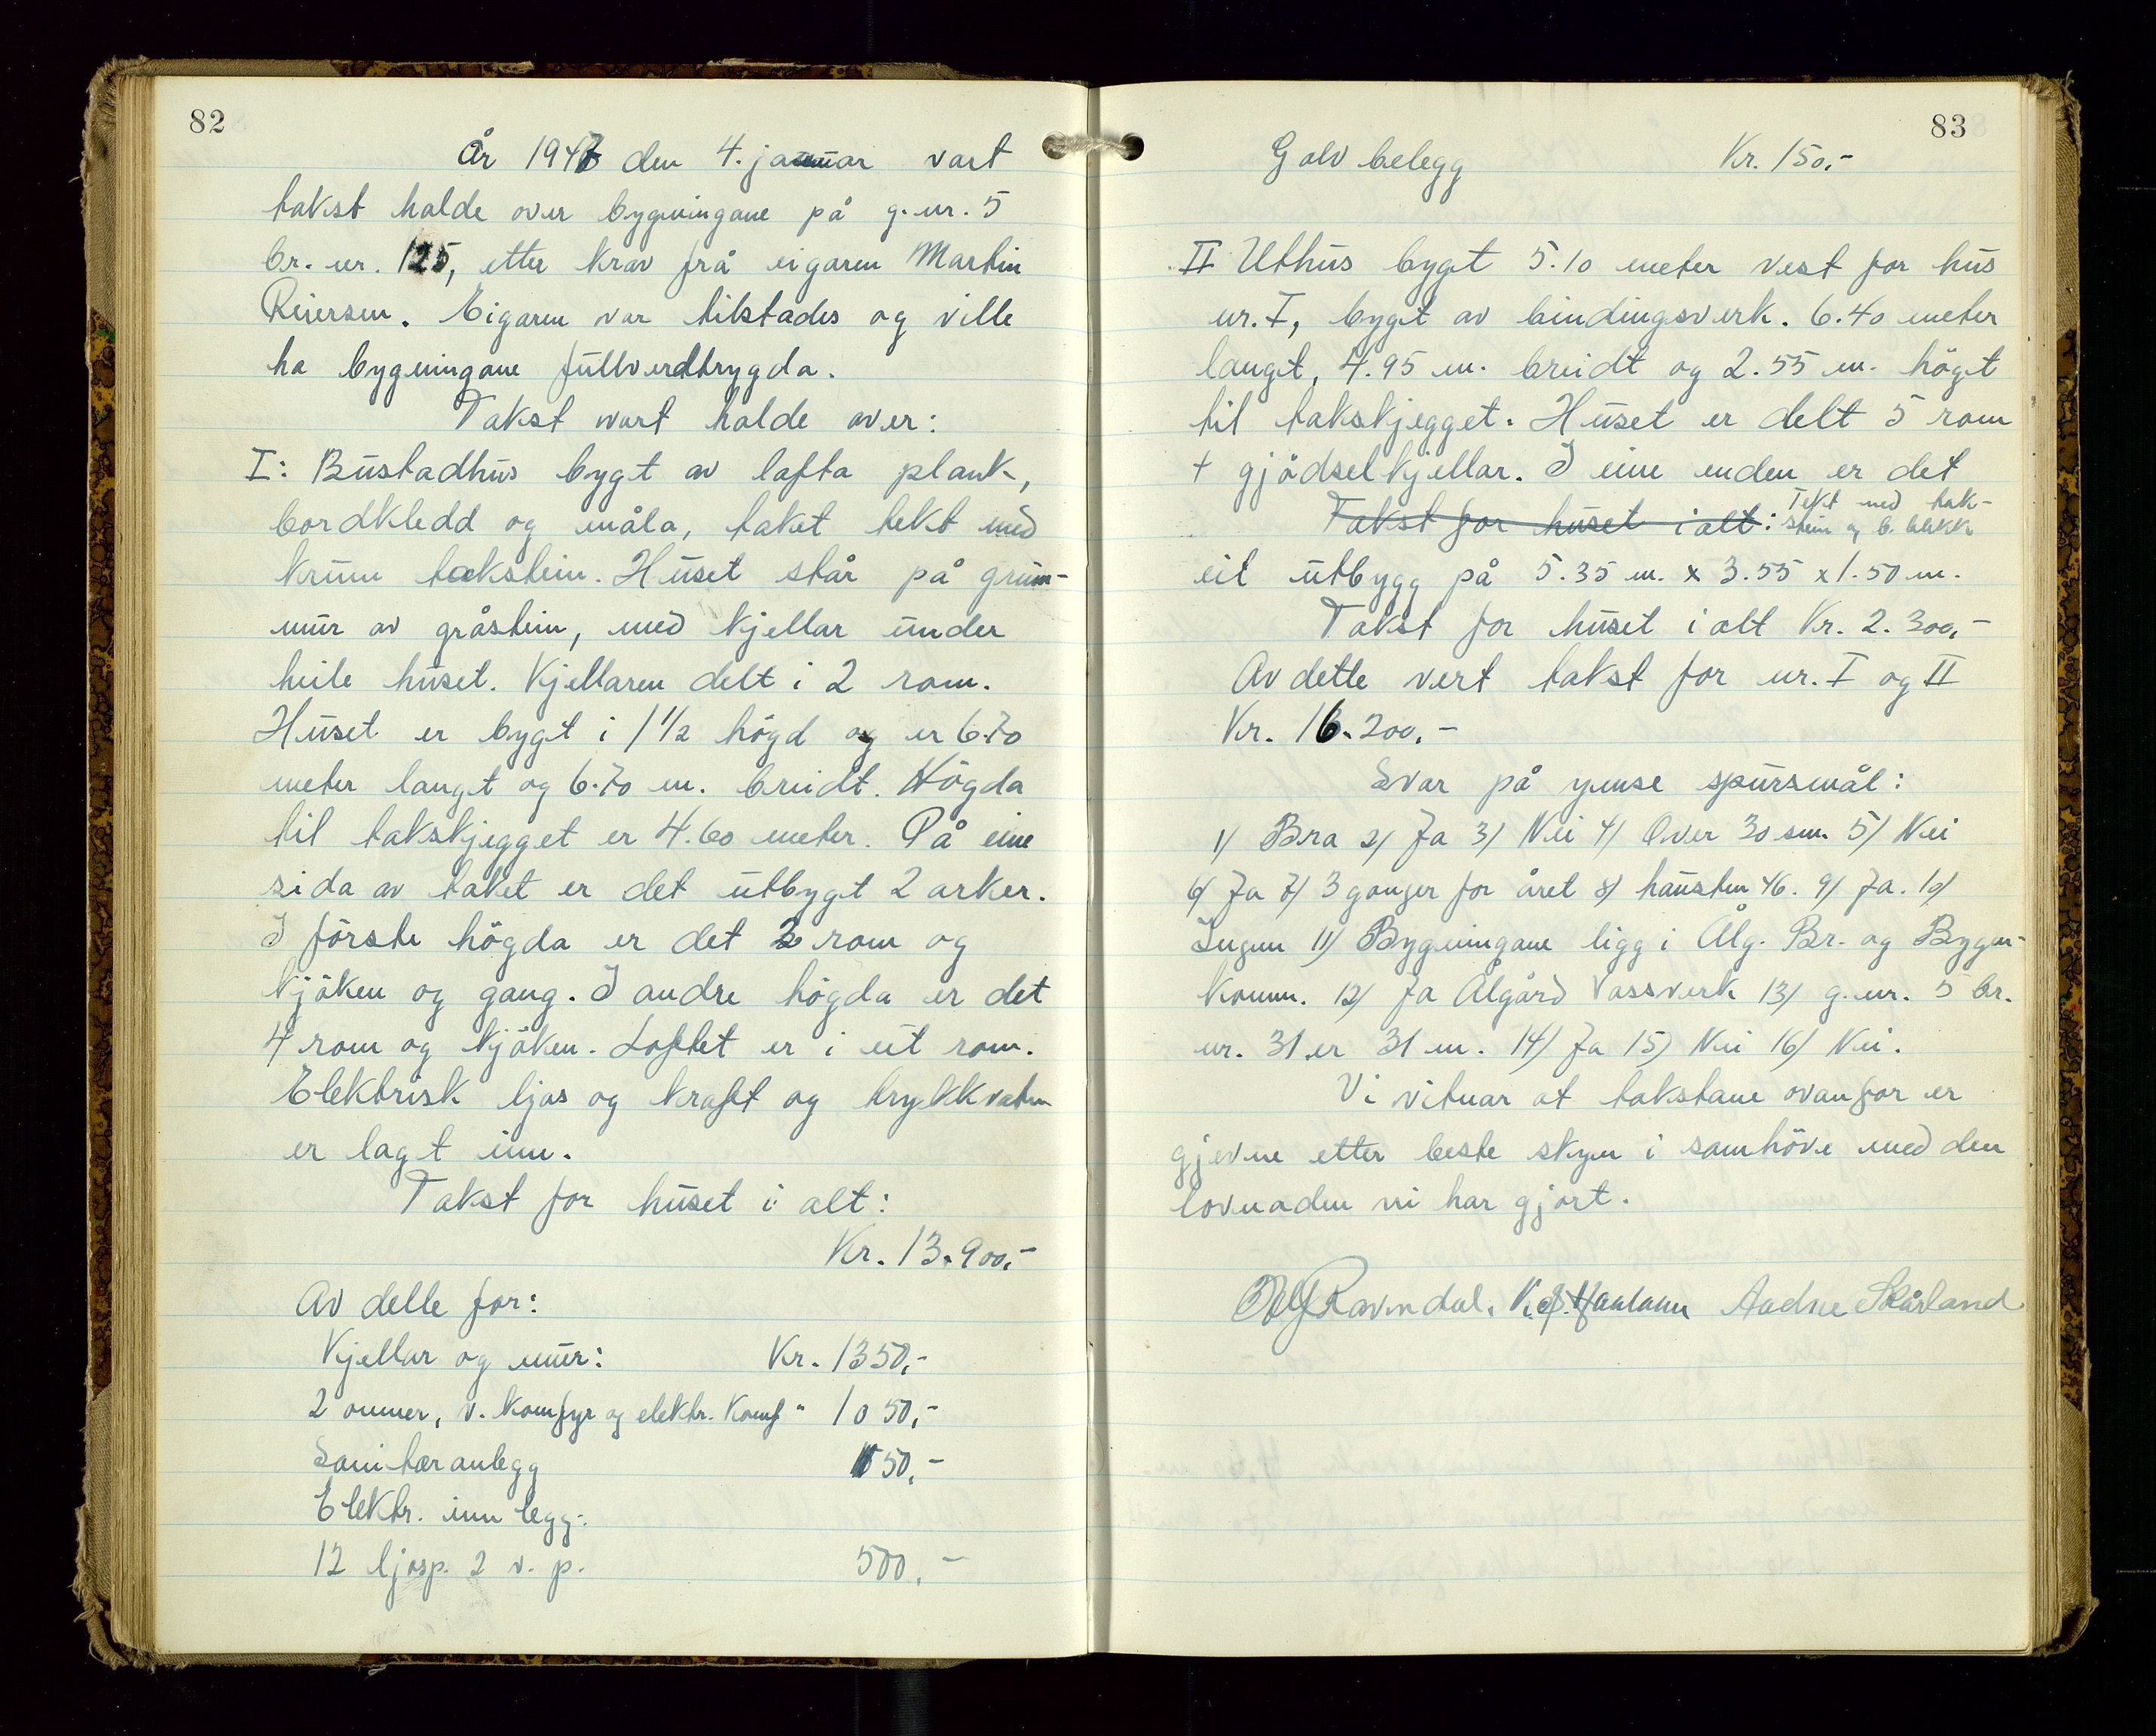 82
År 1947 den 4. januar vart
takst halde over bygningane på g.nr. 5
br.nr. 125, etter krav frå eigaren Martin
Reiersen. Eigaren var tilstades og ville
ha bygningane fullverdtrygda.
Takst vart halde over:
I: Bustadhus bygt av lafta plank,
bordkledd og måla, taket tekt med
krum takstein. Huset står på grun-
mur av gråstein, med kjellar under
heile huset. Kjellaren delt i 2 rom.
Huset er bygt i 1 1/2 högd og er 6.70
meter langt og 6.70 m. breidt. Högda
til takskjegget er 4.60 meter. På eine
sida av taket er det utbygt 2 arker.
I förste högda er det 3 rom og
kjöken og gang. I andre högda er det
4 rom og kjöken. Loftet er i eit rom.
Elektrisk ljos og kraft og trykkvatn
er lagt inn.
Takst for huset i alt:
Kr. 13.900,-
Av delle for:
Kjellar og mur: Kr. 1350,-
2 omner, v. komfyr og elektr. Komf " 1050,-
Sanitæranlegg 150,-
Elektr. innlegg:
12 ljosp. 2 v. p. 500,-
83
Golvbelegg Kr. 150,-
II Uthus bygt 5.10 meter vest for hus
nr. I, bygt av bindingsverk. 6.40 meter
langt, 4.95 m. breidt og 2.55 m. högt
til takskjegget. Huset er delt 5 rom
+ gjödselkjellar. I eine enden er det
Takst for huset ialt: Tekt med tak-
stein og b. blekk
eit utbygg på 5.35 m. x 3.55 x 1.50 m.
Takst for huset i alt Kr. 2.300,-
Av dette vert takst for nr. I og II
Kr. 16.200,-
Svar på ymse spursmål:
1/ Bra 2/ Ja 3/ Nei 4/ Over 30 sm. 5/ Nei
6/ Ja 7/ 3 gonger for året 8/ hausten 46. 9/ Ja. 10/
Ingen 11/ Bygningane ligg i Ålg. Br. og Bygn-
komm. 12/ Ja Ålgård Vassverk 13/ g.nr. 5 br.
nr. 31 er 31 m. 14/ Ja 15/ Nei 16/ Nei.
Vi vitnar at takstane ovanfor er
gjevne etter beste skyn i samhöve med den
lovnaden vi har gjort.
Ravndal. Haaland Aadne Skårland